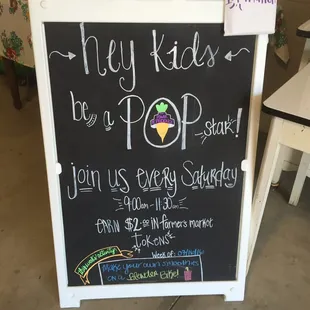 hey Kids
be a POP star!
join us every Saturday
9:00am - 11:30am
EARN $2.00 IN farmer's market
tokens
Week of:
Make your own smoothies
on a Blender Bike!